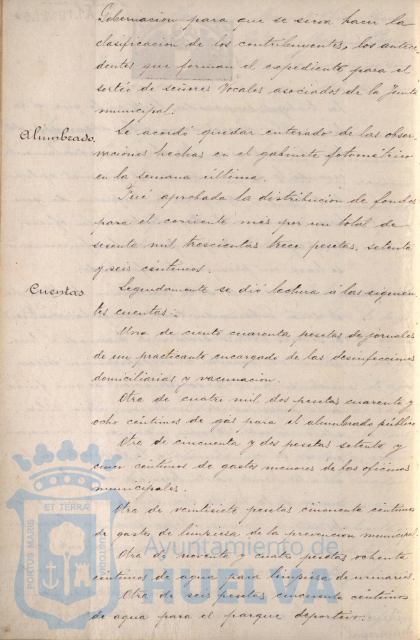 Gobernacion para que se sirva hacer la
clasificacion de los contribuyentes, los antece-
dentes que forman el expediente para el
sorteo de señores Vocales asociados de la Junta
municipal.
Alumbrado.
Se acordó quedar enterado de las obser-
vaciones hechas en el gabinete fotométrico
en la semana última.
Fué aprobada la distribucion de fondos
para el corriente mes por un total de
sesenta mil trescientas trece pesetas, setenta
y seis céntimos.
Cuentas
Seguidamente se dió lectura á las siguien-
tes cuentas:
Una de ciento cuarenta pesetas de jornales
de un practicante encargado de las desinfecciones
domiciliarias y vacunacion.
Otra de cuatro mil dos pesetas cuarenta y
ocho céntimos de gas para el alumbrado público
Otra de cincuenta y dos pesetas setenta y
cinco céntimos de gastos menores de las oficinas
municipales.
Otra de veintisiete pesetas cincuenta céntimos
de gastos de limpieza de la prevencion municipal.
Otra de noventa y cuatro pesetas ochenta
céntimos de agua para limpieza de urinarios.
Otra de seis pesetas cincuenta céntimos
de agua para el parque deportivo.
PORTUS MARIS ET TERRAE CUSTODIA
Ayuntamiento de
HUELVA